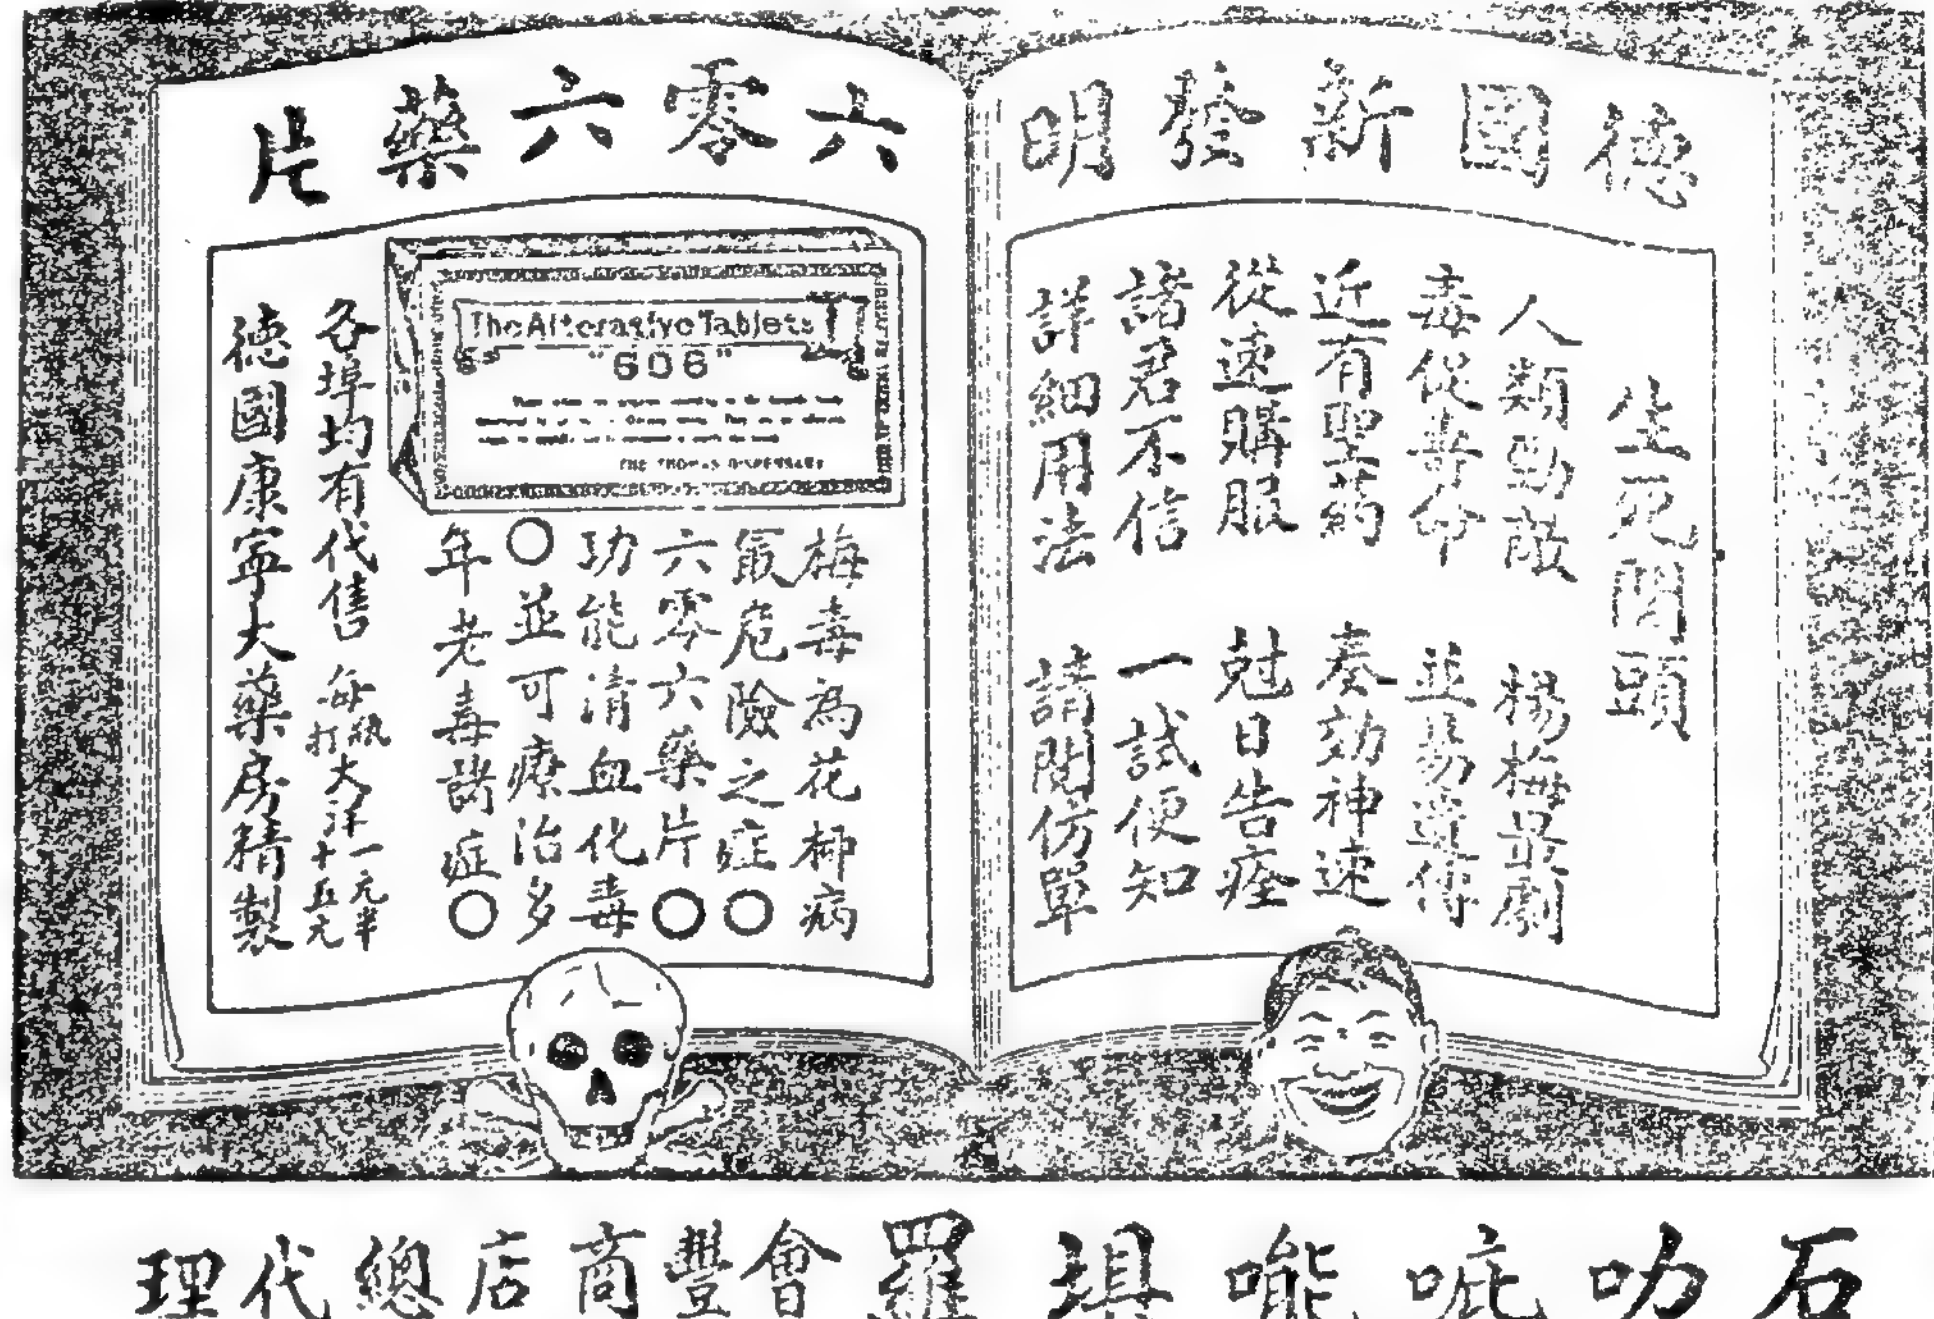 德國新發明
六零六藥片
生死關頭
人類勁敵 楊梅最劇
毒促壽命 並易遺傳
近有聖药 奏効神速
從速購服 尅日告痊
諸君不信 一試便知
詳細用法 請閱仿單
The Alterative Tablets
"606"
THE THOMAS DISPENSARY
梅毒為花柳病
最危險之症〇
六零六藥片〇
功能清血化毒
〇並可療治多
年老毒諸症〇
各埠均有代售 每瓶大洋一元半
每打大洋十五元
德國康寧大藥房精製
石叻
羅
會豐商店總代理